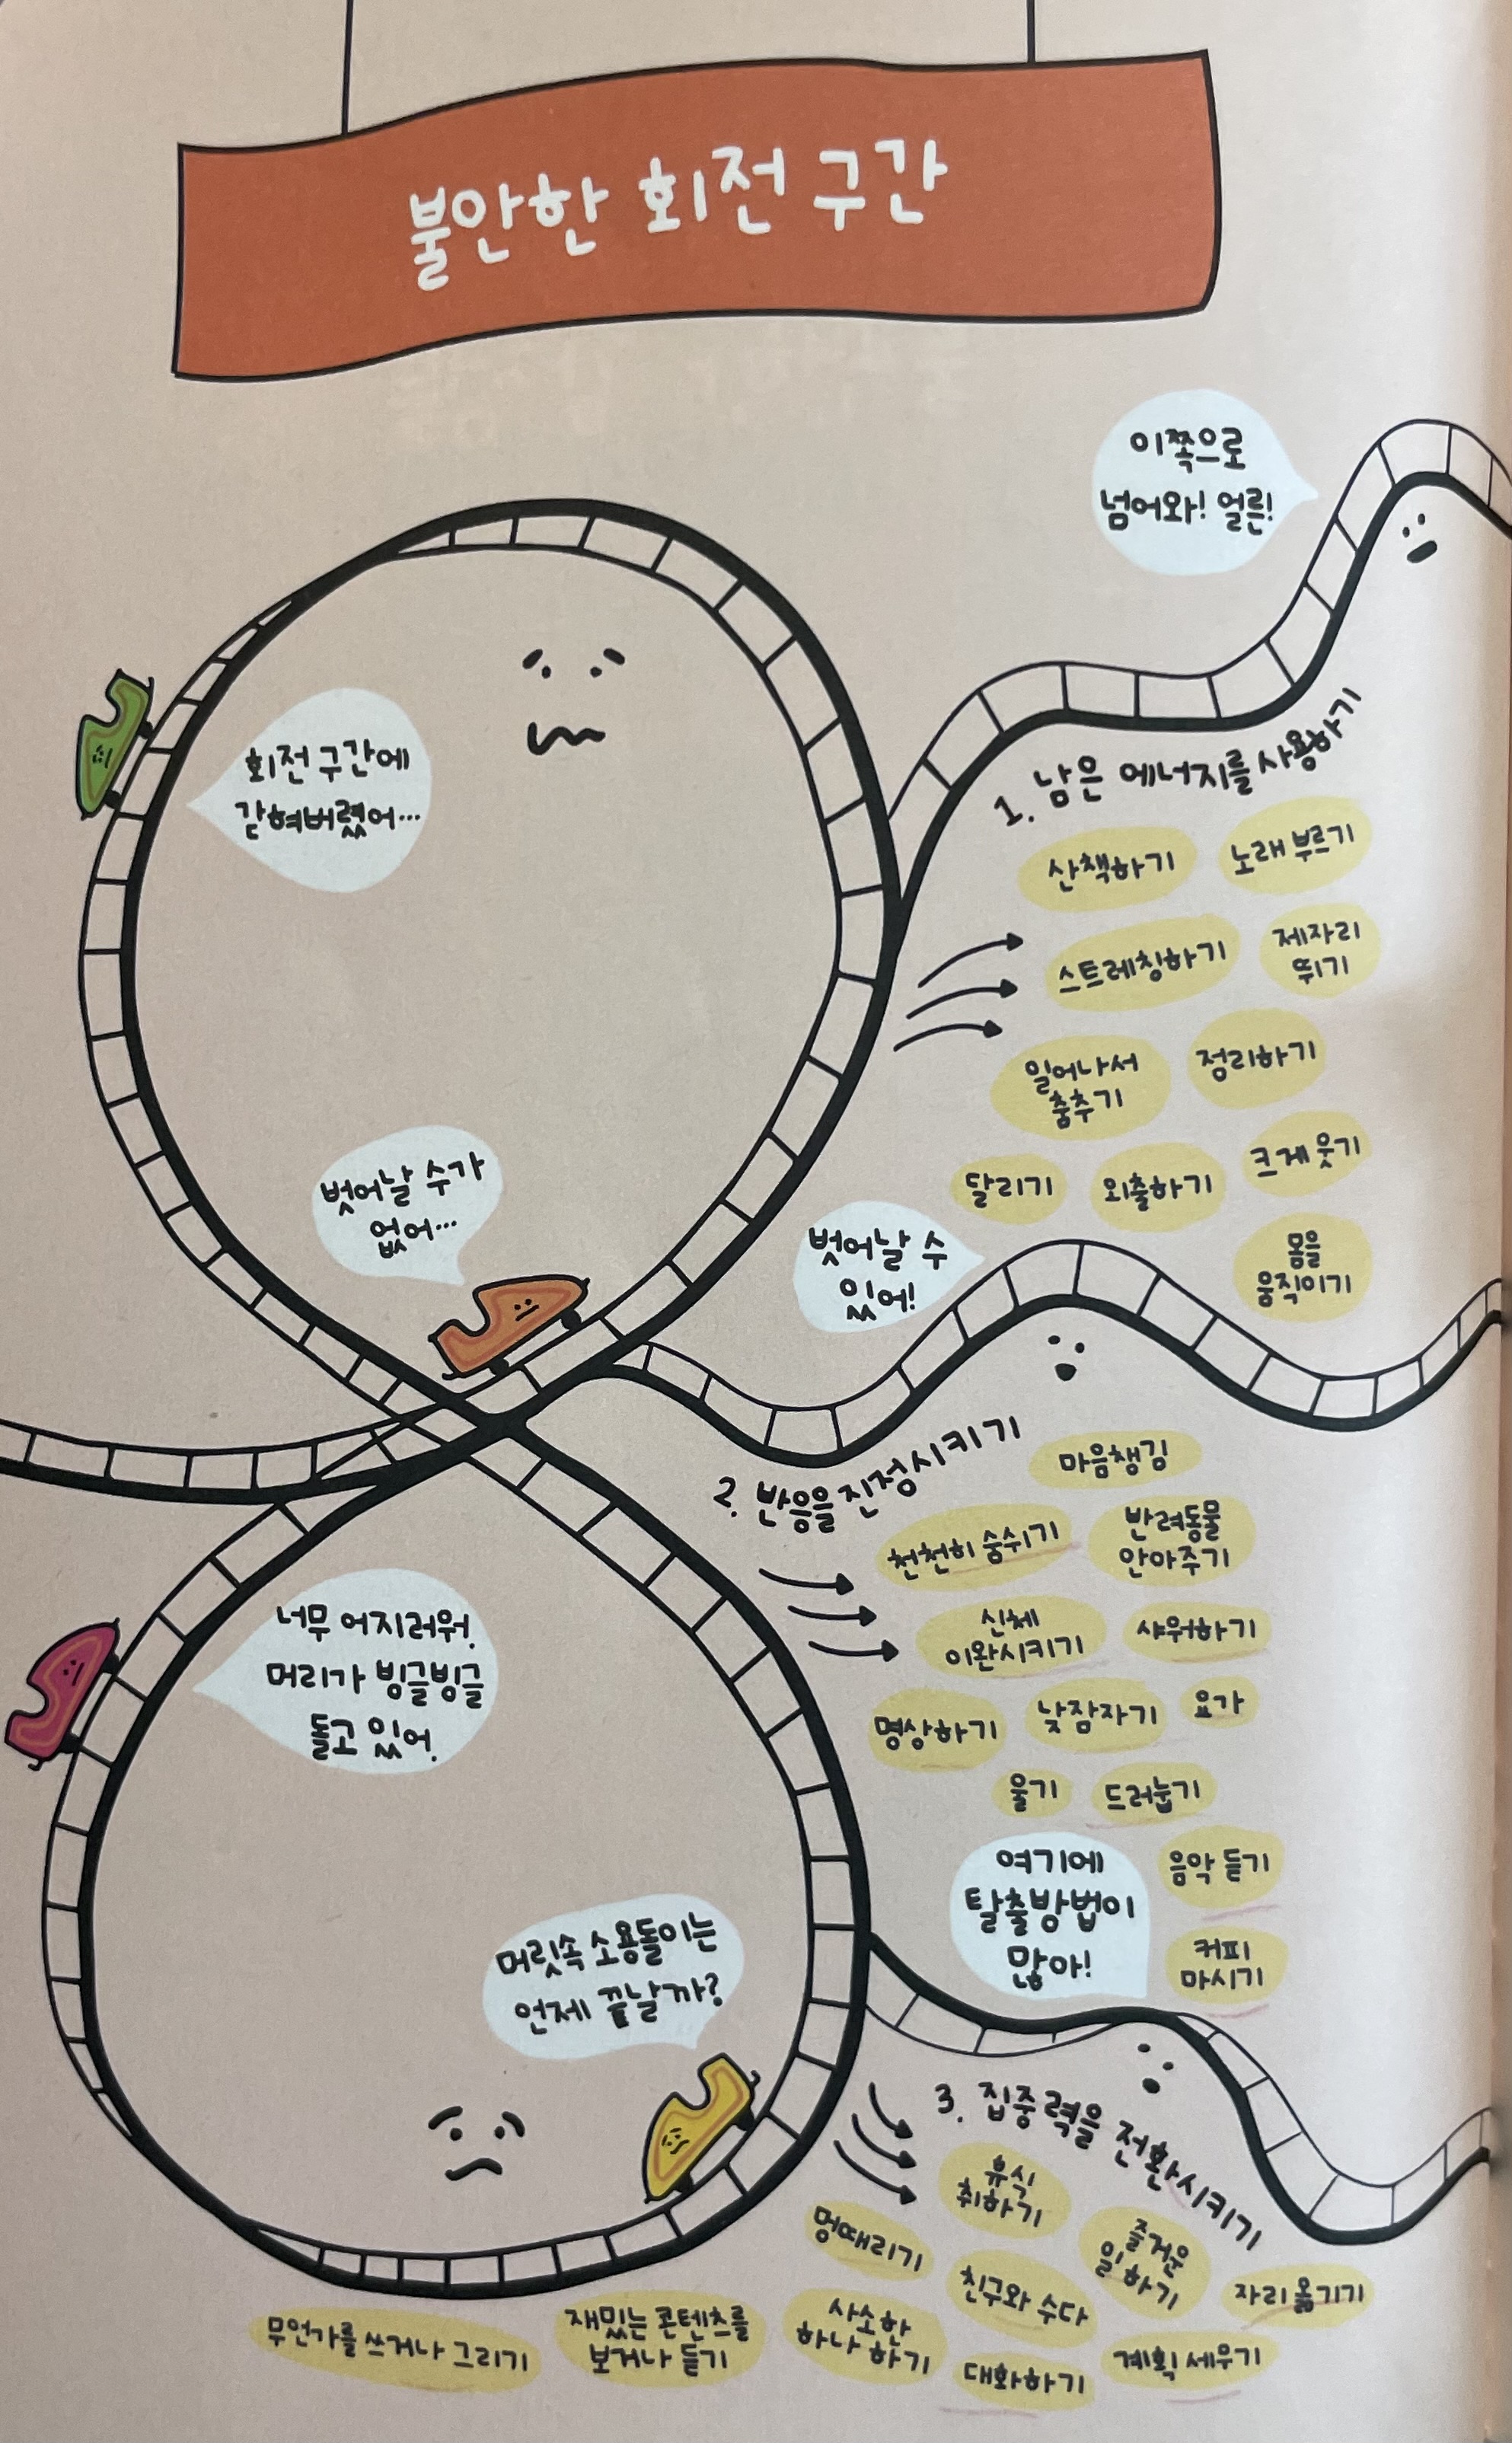 불안한 회전 구간
이쪽으로
넘어와! 얼른!
회전 구간에
갇혀버렸어…
벗어날 수가
없어…
1. 남은 에너지를 사용하기
산책하기
노래 부르기
스트레칭하기
제자리
뛰기
일어나서
춤추기
정리하기
달리기
외출하기
크게 웃기
몸을
움직이기
벗어날 수
있어!
2. 반응을 진정시키기
마음챙김
천천히 숨쉬기
반려동물
안아주기
신체
이완시키기
샤워하기
명상하기
낮잠자기
요가
울기
드러눕기
음악 듣기
커피
마시기
너무 어지러워.
머리가 빙글빙글
돌고 있어.
머릿속 소용돌이는
언제 끝날까?
여기에
탈출방법이
많아!
3. 집중력을 전환시키기
휴식
취하기
멍때리기
즐거운
일 하기
친구와 수다
자리 옮기기
무언가를 쓰거나 그리기
재밌는 콘텐츠를
보거나 듣기
사소한
하나 하기
대화하기
계획 세우기